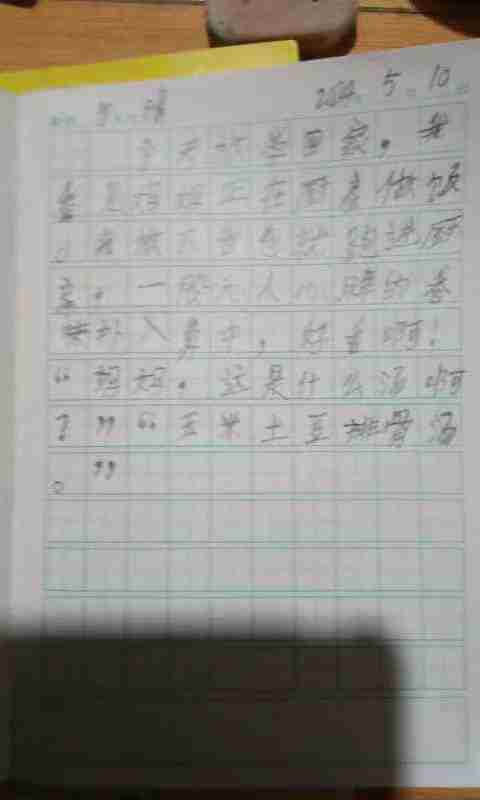 晴 5 10
今天放学回家，我
看见妈妈正在厨房做饭
。我放下书包就跑进厨
房。一股 人的 的香
味扑入鼻中，好香啊！
“妈妈。这是什么汤啊
？”“玉米土豆排骨汤
。”